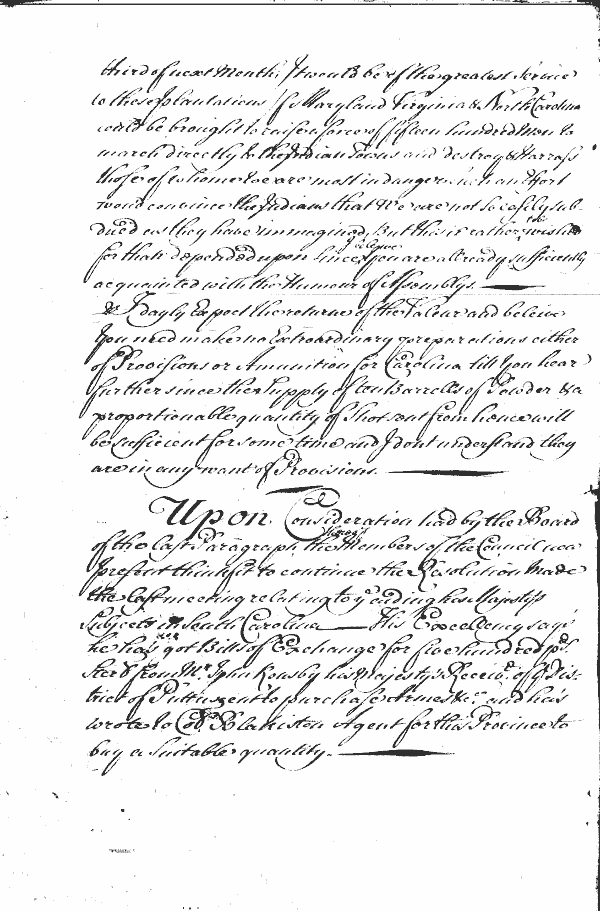 third of next Month, It would be of the greatest Service
to these plantations If Maryland Virginia & North Carolina
could be brought to raise a force of fifteen hundred Men to
march directly to the Indian Towns and destroy & Harrass
those of whome we are most in danger such an Effort
would convince the Indians that We are not so easely sub-
dued as they have immagined, But this is rather to be wished
for than depended upon since I believe you are allready sufficiently
acquainted with the Humour of Assemblys.
I dayly Expect the returne of the Valeur and beleive
You need make no Extraordinary preparations either
of Provisions or Amunition for Carolina till You hear
further since the Supply of ten Barrells of Powder & a
proportionable quantity of Shot sent from hence will
be sufficient for some time and I dont understand they
are in any want of Provisions.
Upon Consideration had by the Board
of the last Paragraph the Members of the Council now
present think fit to continue the Resolution made
the last meeting relating to ye aiding his Majestys
Subjects in South Carolina His Excellency says
he has got Bills of Exchange for five hundred pds.
Sterl from Mr. John Rousby his Majesty's Receivr. of ye Dis-
trict of Puttuxent to purchase Armes &c. and has
wrote to Col Blakiston Agent for this Province to
buy a Suitable quantity.